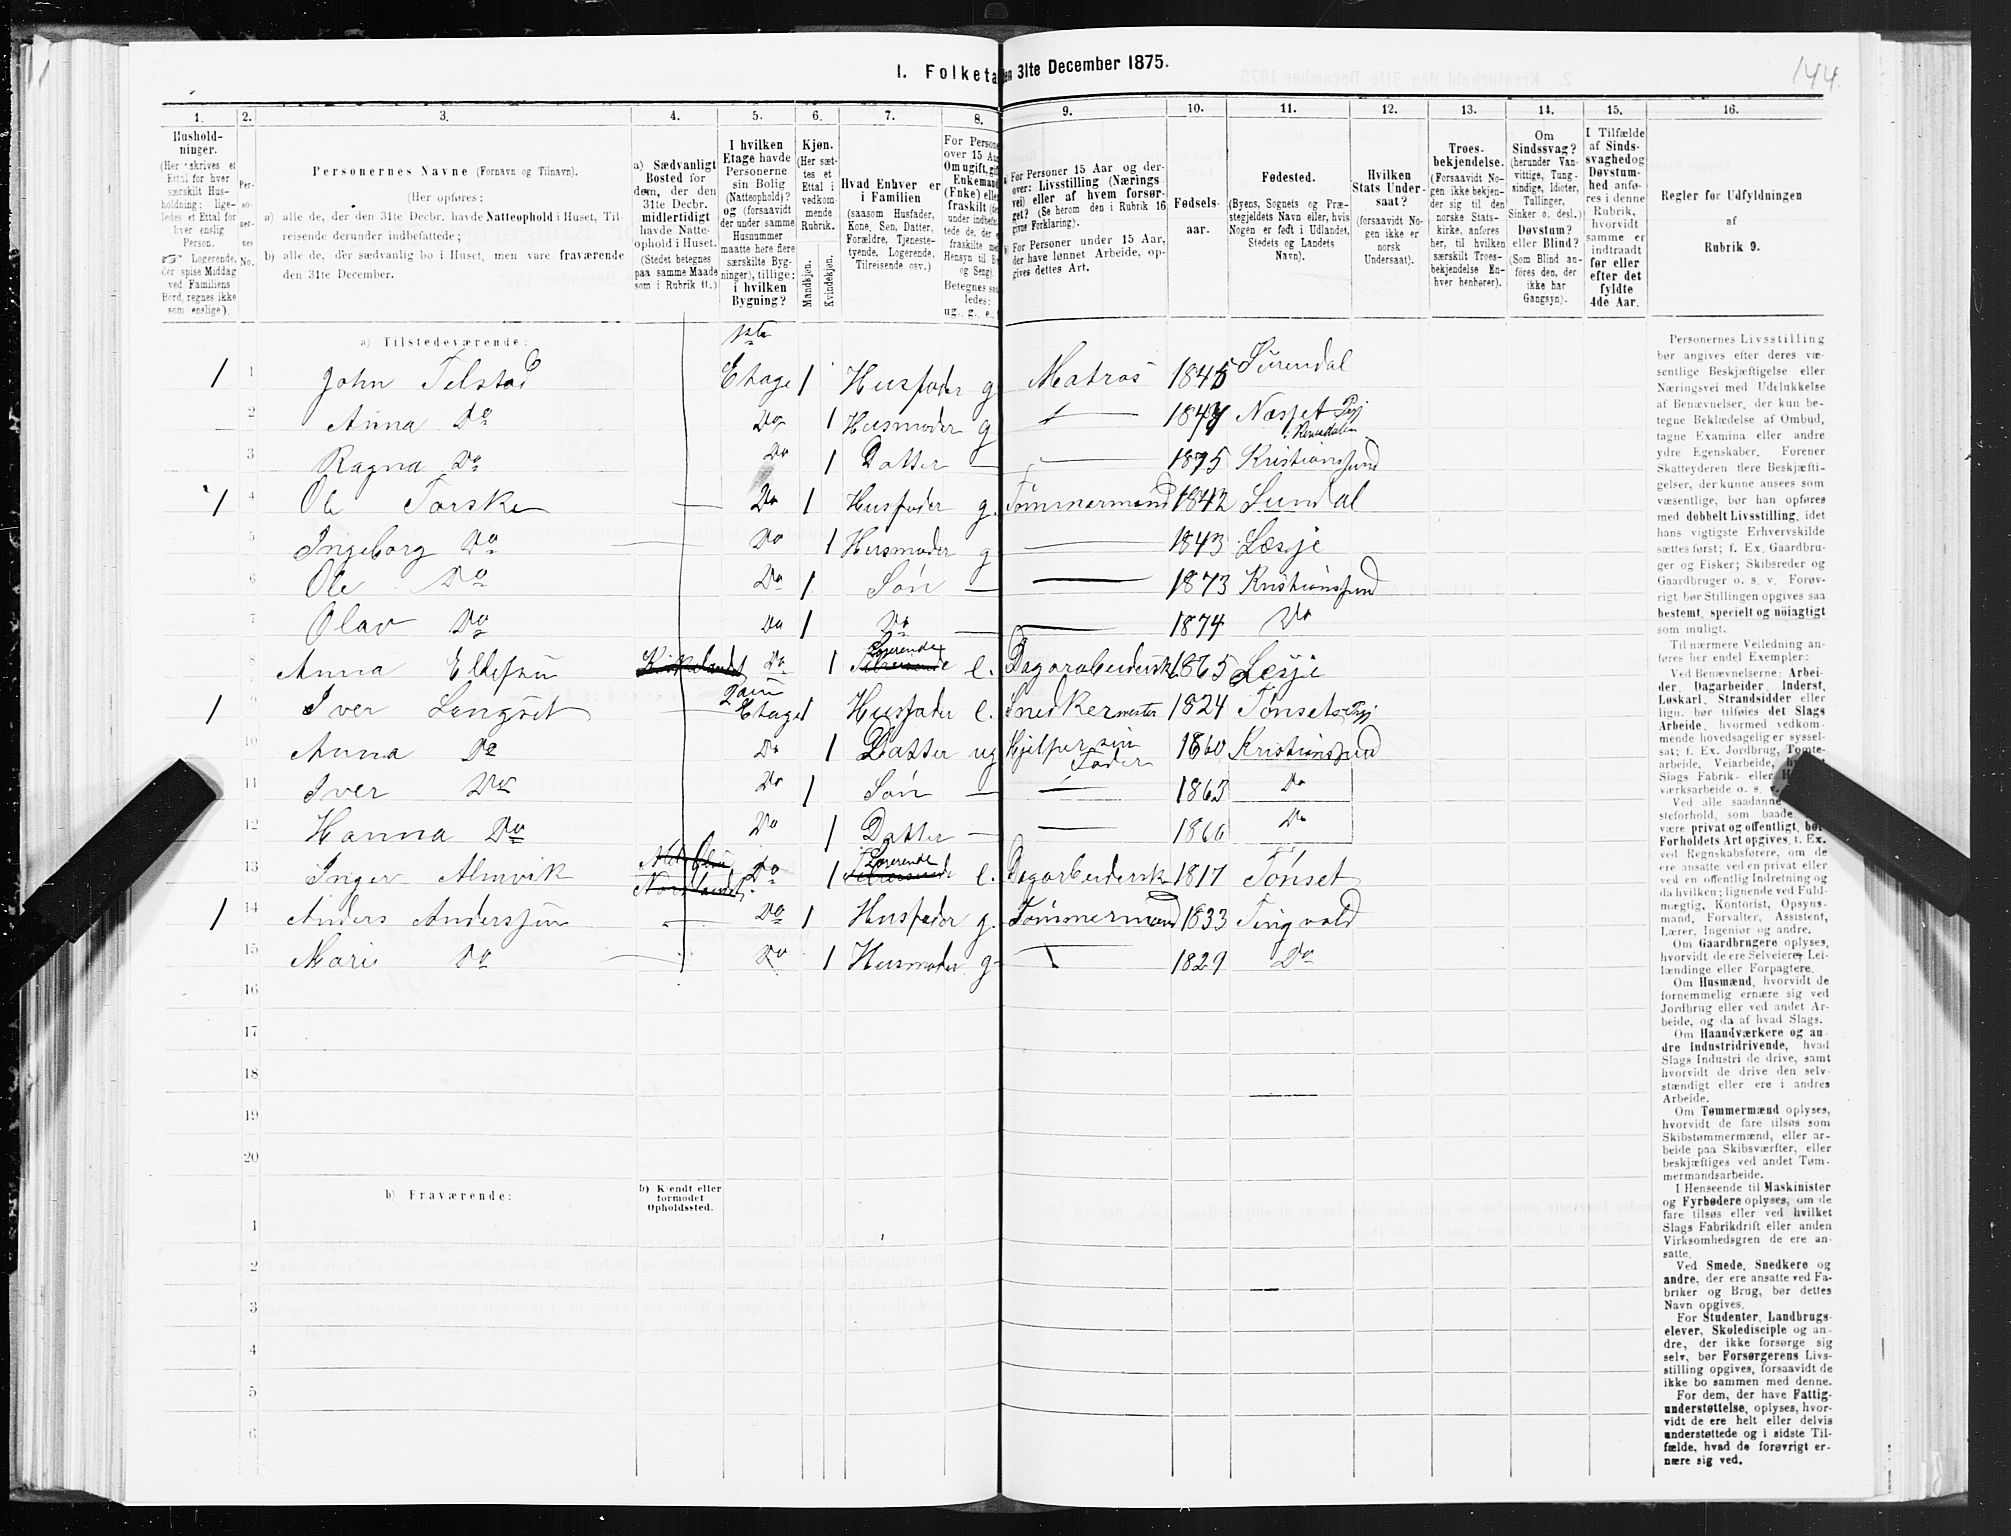 144.
I. Folketa
den 31te December 1875.
1. 2. 3. 4. 5. 6. 7. 8. 9. 10. 11. 12. 13. 14. 15. 16.
Hushold-
ninger.
(Her skrives et
Ettal for hver
særskilt Hus-
holdning; lige-
ledes et Ettal for
hver enslig
Person.
☞ Logerende,
der spise Middag
ved Familiens
Bord, regnes ikke
som enslige).
Per-
so-
ner-
nes
No.
Personernes Navne (Fornavn og Tilnavn).
(Her opføres:
a) alle de, der den 31te Decbr. havde Natteophold i Huset, Til-
reisende derunder indbefattede;
b) alle de, der sædvanlig bo i Huset, men vare fraværende
den 31te December.
a) Sædvanligt
Bosted for
dem, der den
31te Decbr.
midlertidigt
havde Natte-
ophold i Huset.
(Stedet betegnes
paa samme Maade
som i Rubrik 11.)
I hvilken
Etage havde
Personerne
sin Bolig
(Natteophold)?
og (forsaavidt
der under samme
Husnummer
maatte høre flere
særskilte Byg-
ninger), tillige:
i hvilken
Bygning?
Kjøn.
(Her sæt-
tes et
Ettal i
vedkom-
mende
Rubrik.
Mandkjøn.
Kvindekjøn.
Hvad Enhver er
i Familien
(saasom Husfader,
Kone, Søn, Datter,
Forældre, Tjeneste-
tyende, Logerende,
Tilreisende osv.)
For Persone
over 15 Aa
Om ugift, gif
Enkemand
(Enke) elle
fraskilt (de
under indbefa
tede de, der e
fraskilte me
Hensyn til B
og Seng).
Betegnes saa
ledes:
ug., g., e.,
For Personer 15 Aar og der-
over: Livsstilling (Nærings
vei) eller af hvem forsør-
get? (Se herom den i Rubrik 16
givne Forklaring).
For Personer under 15 Aar,
der have lønnet Arbeide, op-
gives dettes Art.
Fødsels-
aar.
Fødested.
(Byens, Sognets og Præ-
stegjeldets Navn eller, hvis
Nogen er født i Udlandet,
Stedets og Landets
Navn).
Hvilken
Stats Under-
saat?
(forsaavidt No-
gen ikke er
norsk
Undersaat).
Troes-
bekjendelse.
(Forsaavidt No-
gen ikke bekjen-
der sig til den
norske Stats-
kirke, anføres
her, til hvilken
særskilt Troes-
bekjendelse En-
hver henhører).
Om
Sindssvag?
(herunder Van-
vittige, Tung-
sindige, Idioter,
Tullinger,
Sinker o. desl.)
Døvstum?
eller Blind?
(Som Blind an-
føres den, der
ikke har
Gangsyn).
I Tilfælde
af Sinds-
svaghed og
Døvstum-
hed anfø-
res i denne
Rubrik,
hvorvidt
samme er
indtraadt
før eller
efter det
fyldte
4de Aar.
Regler for Udfyldningen
af
Rubrik 9.
a) Tilstedeværende:
1ste
1 1 John Telstad Etage 1 Husfader g Matros 1845 Surendal
2 Anna Do Do 1 Husmoder g — 1847 Næsset Pgj
i Romsdalen
3 Ragna Do Do 1 Datter — — 1875 Kristiansund
1 4 Ole Torske — Do 1 Husfader g. Tømmermand 1842 Sundal
5 Ingeborg Do — Do 1 Husmoder g — 1843 Læsje
6 Ole Do Do 1 Søn — — 1873 Kristiansund
7 Olav Do Do 1 Do — — 1874 Do
Logerende
8 Anna Ellefsen Kirkelandet Do 1 Tilreisende e. Dagarbeiderske 1865 Læsje
2den
1 9 Iver Lengset — Etage 1 Husfader e. Snedkermester 1824 Tønset Pgj
10 Anna Do Do 1 Datter ug Hjelper sin
Fader 1860 Kristiansund
11 Iver Do Do 1 Søn — — 1863 Do
12 Hanna Do Do 1 Datter — — 1866 Do
Logerende
13 Inger Almvik Nordlandet Do 1 Tilreisende e. Dagarbeiderske 1817 Tønset
1 14 Anders Anderssen — Do 1 Husfader g. Tømmermand 1833 Tingvold
15 Mari Do — Do 1 Husmoder g — 1829 Do
16
17
18
19
20
b) Fraværende:
b) Kjendt eller
formodet
Opholdssted.
1
2
3
4
5
6
Personernes Livsstilling
bør angives efter deres væ-
sentlige Beskjæftigelse eller
Næringsvei med Udelukkelse
af Benævnelser, der kun be-
tegne Beklædelse af Ombud,
tagne Examina eller andre
ydre Egenskaber. Forener
Skatteyderen flere Beskjæfti-
gelser, der kunne ansees som
væsentlige, bør han opføres
med dobbelt Livsstilling, idet
hans vigtigste Erhvervskilde
sættes først; f. Ex. Gaardbru-
ger og Fisker; Skibsreder og
Gaardbruger o. s. v. Forøv-
rigt bør Stillingen opgives saa
bestemt, specielt og nøiagtigt
som muligt.
Til nærmere Veiledning an-
føres her endel Exempler:
Ved Benævnelserne: Arbei-
der, Dagarbeider, Inderst,
Løskarl, Strandsidder eller
lign. bør tilføies det Slags
Arbeide, hvormed vedkom-
mende hovedsagelig er syssel-
sat; f. Ex. Jordbrug, Tomte-
arbeide, Veiarbeide,
Slags Fabrik- eller
værksarbeide o. s. v.
Ved alle saadanne
steforhold, som baade
være privat og offentlig, bør
Forholdets Art opgives, t. Ex.
ved Regnskabsførere, om de
ere ansatte ved en privat eller
ved en offentlig Indretning og
da hvilken; lignende ved Fuld-
mægtig, Kontorist, Opsyns-
mand, Forvalter, Assistent,
Lærer, Ingeniør og andre.
Om Gaardbrugere oplyses,
hvorvidt de ere Selveiere, Lei-
lændinge eller Forpagtere.
Om Husmænd, hvorvidt de
fornemmelig ernære sig ved
Jordbrug eller ved andet Ar-
beide, og da af hvad Slags.
Om Haandværkere og an-
dre Industridrivende, hvad
Slags Industri de drive, samt
hvorvidt de drive den selv-
stændigt eller ere i andres
Arbeide.
Om Tømmermænd oplyses,
hvorvidt de fare tilsøs som
Skibstømmermænd, eller ar-
beide paa Skibsværfter, eller
beskjæftiges ved andet Tøm-
mermandsarbeide.
I Henseende til Maskinister
og Fyrbødere oplyses, om de
fare tilsøs eller ved hvilket
Slags Fabrikdrift eller anden
Virksomhedsgren de ere an-
satte.
Ved Smede, Snedkere og
andre, der ere ansatte ved Fa-
briker og Brug, bør dettes
Navn opgives.
For Studenter, Landbrugs-
elever, Skoledisciple og an-
dre, der ikke forsørge sig
selv, bør Forsørgerens Livs-
stilling opgives, forsaavidt de
ikke bo sammen med denne.
For dem, der have Fattig-
understøttelse, oplyses, hvor-
vidt de ere helt eller delvis
understøttede og i sidste Til-
fælde, hvad de forøvrigt er-
nære sig ved.